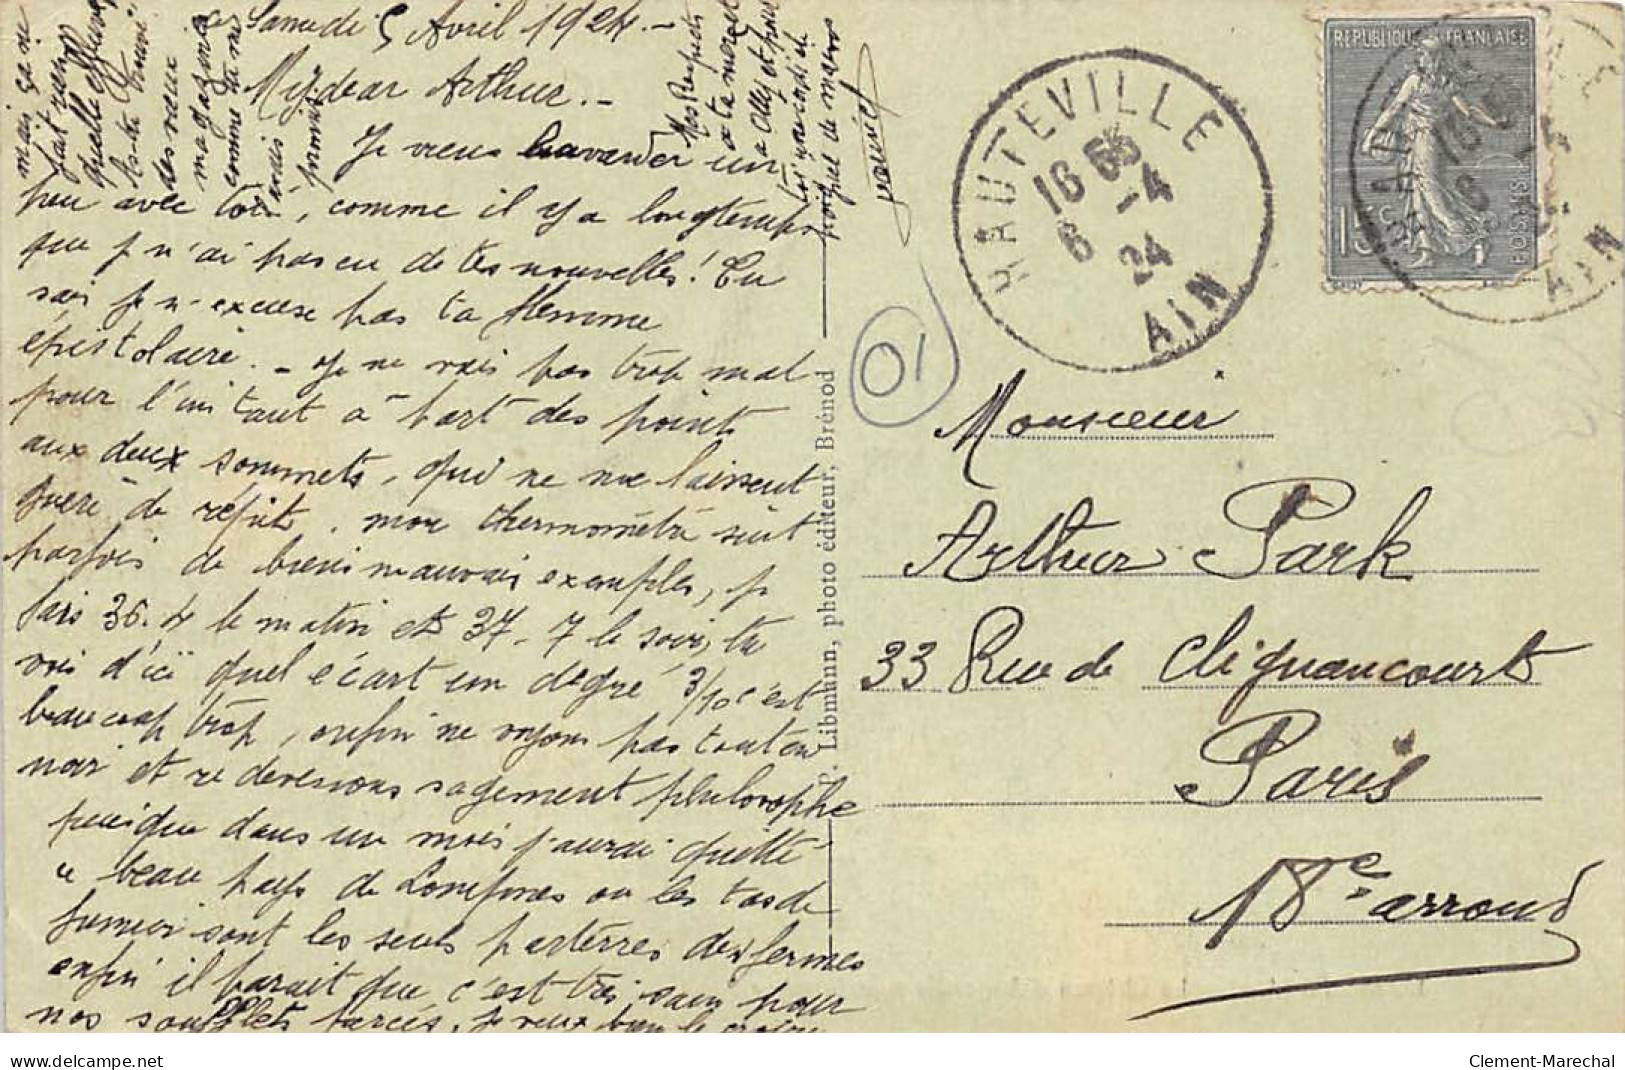 Samedi 5 Avril 1924.-
My dear Arthur.-
Je viens bavarder un
peu avec toi, comme il y a longtemps
que j n'ai pas eu de tes nouvelles! Tu
sais je n'excuse pas ta flemme
épistolaire. - Je ne vais pas trop mal
pour l'instant à part des points
aux deux sommets, qui ne me laissent
guère de répit, mon thermomètre suit
parfois de bien mauvais exemples, j
fais 36.4 le matin et 37-7 le soir, tu
vois d'ici quel écart un degré 3/10 c'est
beaucoup trop, enfin ne voyons pas tout en
noir et redevenons sagement philosophe
puisque dans un mois j'aurai quitté
ce beau pays de Lompnes ou les tas de
fumier sont les seuls parterres des fermes
enfin il parait que c'est très sain pour
nos soufflets percés, je veux bien le croire
mais ça ne
fait rien
quelle
as-tu trouvé
des vœux
magazine
comme tu me
l'avais
promis
Mes Respects
a ta mère et
a Alley et pour
toi
poignée de mains
HAUTEVILLE
16 55
6 -4
24
AIN
REPUBLIQUE FRANÇAISE
15c
POSTES
AIN
01
P. Libmann, photo éditeur, Brénod
Monsieur
Arthur Park
33 Rue de Clignancourt
Paris
18e arrond
delcampe.net
Clement-Marechal